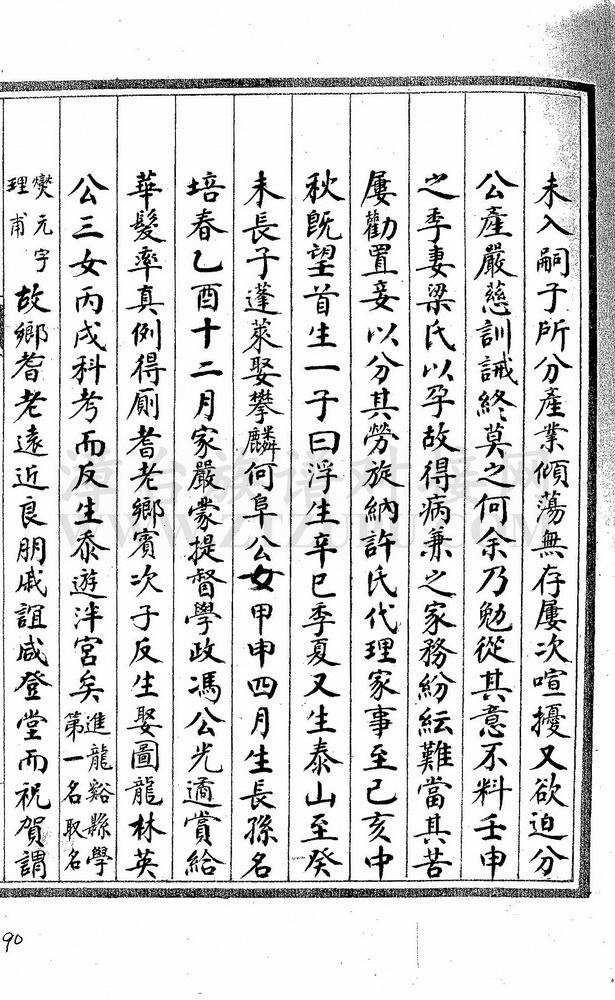 未入嗣子所分產業傾蕩無存屢次喧擾又欲迫分
公產嚴慈訓誡終莫之何余乃勉從其意不料壬申
之季妻梁氏以孕故得病兼之家務紛紜難當其苦
屢勸置妾以分其勞旋納許氏代理家事至己亥中
秋既望首生一子曰浮生辛巳季夏又生泰山至癸
未長子蓬萊娶攀麟何阜公女甲申四月生長孫名
培春乙酉十二月家嚴蒙提督學政馮公光遹賞給
華髮率真例得廁耆老鄉賓次子反生娶圖龍林英
公三女丙戌科考而反生泰遊泮宮矣進龍谿縣學第一名取名
爕元字理甫故鄉耆老遠近良朋戚誼咸登堂而祝賀謂
90